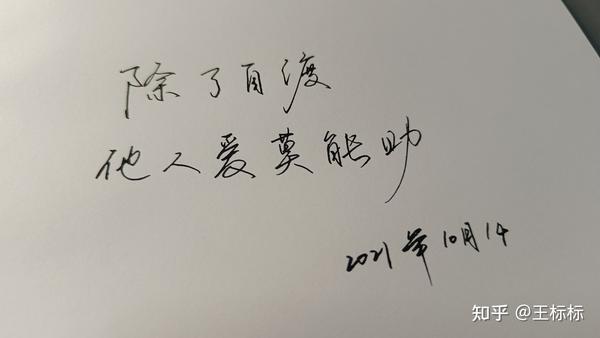 除了自渡
他人爱莫能助
2021年10月14
知乎 @王标标